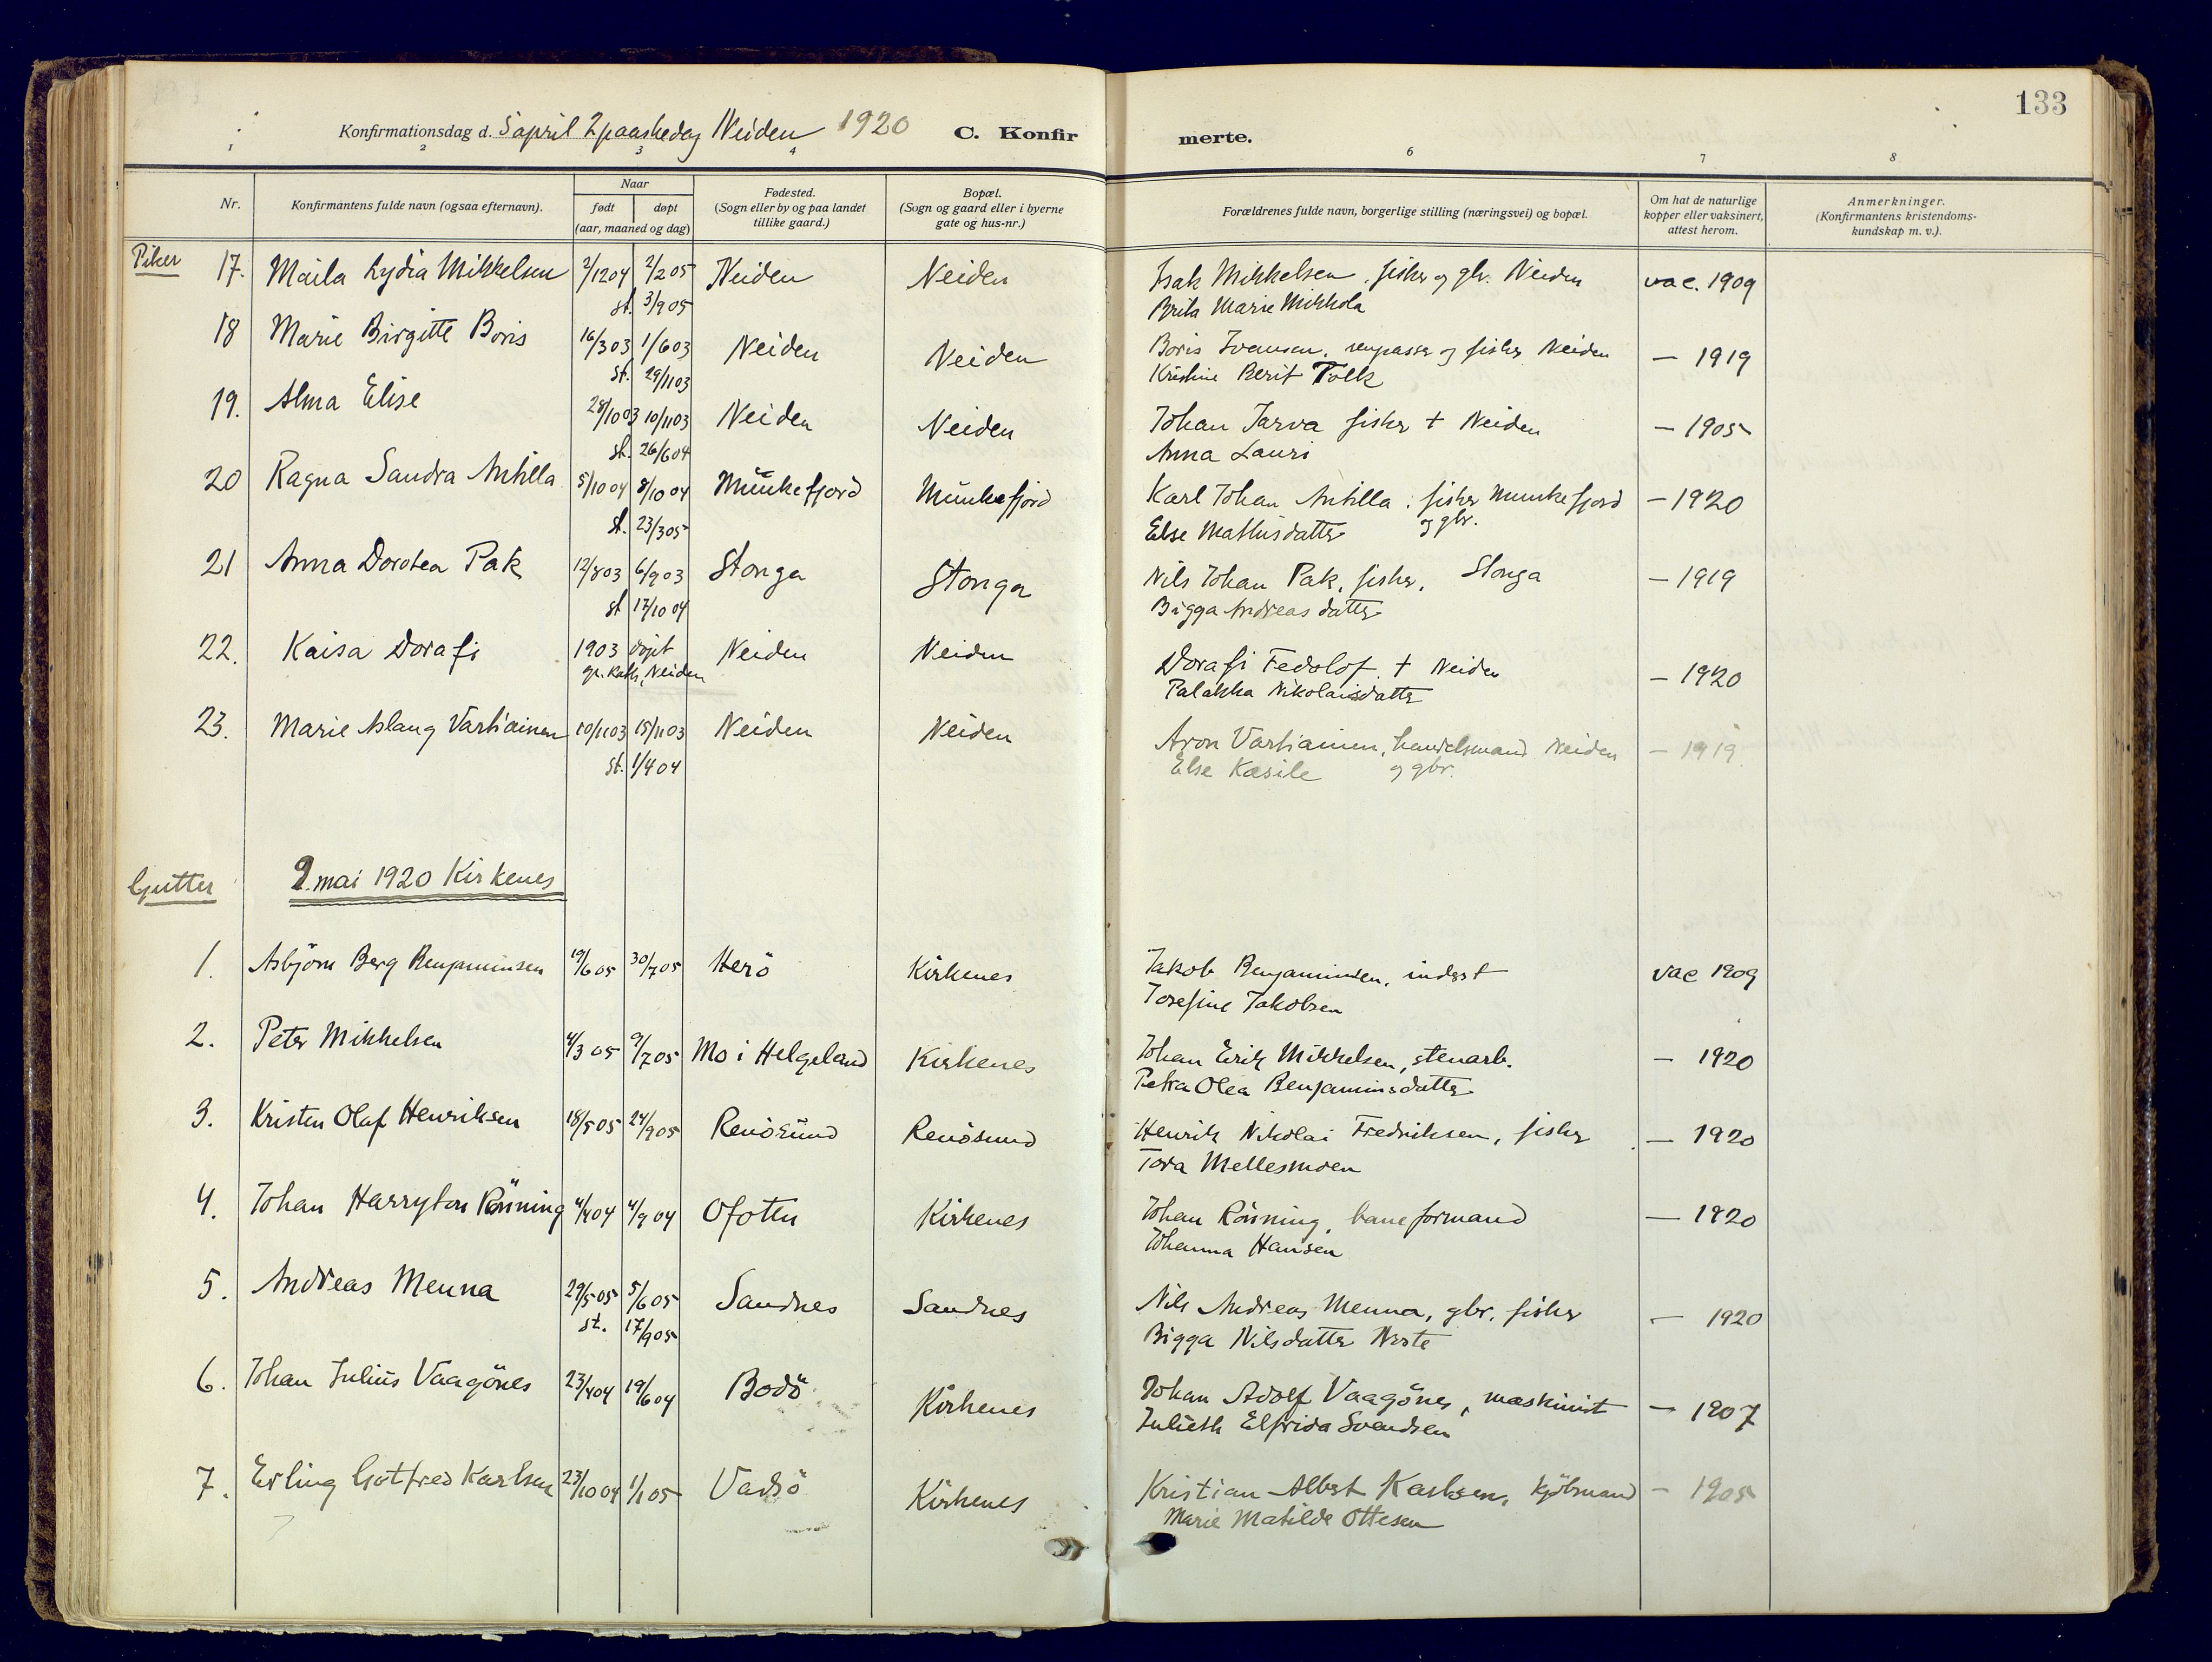 133
Konfirmationsdag d. 5 april 2 paaskedag Neiden 1920 C. Konfirmerte.
1 2 3 4 6 7 8
Nr. Konfirmantens fulde navn (ogsaa efternavn). Naar født døpt (aar, maaned og dag) Fødested. (Sogn eller by og paa landet tillike gaard.) Bopæl. (Sogn og gaard eller i byerne gate og hus-nr.) Forældrenes fulde navn, borgerlige stilling (næringsvei) og bopæl. Om hat de naturlige kopper eller vaksinert, attest herom. Anmerkninger. (Konfirmantens kristendoms-kundskap m. v.).
Piker 17. Maila Lydia Mikkelsen 2/12 04 2/2 05 Neiden Neiden Isak Mikkelsen, fisker og gbr. Neiden vac. 1909
st. 3/9 05 Brita Marie Mikkola
18 Marie Birgitte Boris 16/3 03 1/6 03 Neiden Neiden Boris Ivansen, renpasser og fisker Neiden — 1919
st. 29/11 03 Kristine Berit Tolk
19. Alma Elise 28/10 03 10/11 03 Neiden Neiden Johan Jarva fisker † Neiden — 1905
st. 26/6 04 Anna Lauri
20 Ragna Sandra Antilla 5/10 04 8/10 04 Munkefjord Munkefjord Karl Johan Antilla, fisker Munkefjord — 1920
st. 23/3 05 Else Mathisdatter og gbr.
21 Anna Dorotea Pak 12/8 03 6/9 03 Stonga Stonga Nils Johan Pak, fisker, Stonga — 1919
st 17/10 04 Bigga Andreasdatter
22. Kaisa Dorafi 1903 døpt Neiden Neiden Dorafi Fedolof † Neiden — 1920
gr. kath, Neiden Palakka Nikolaisdatter
23. Marie Aslaug Vartiainen 10/11 03 15/11 03 Neiden Neiden Aron Vartiainen, handelsmand Neiden — 1919
st. 1/4 04 Else Kasile og gbr.
Gutter 9. mai 1920 Kirkenes
1. Asbjörn Berg Benjaminsen 19/6 05 30/7 05 Herö Kirkenes Jakob Benjaminsen, inderst vac 1909
Josefine Jakobsen
2. Peter Mikkelsen 4/3 05 9/7 05 Mo i Helgeland Kirkenes Johan Erik Mikkelsen, stenarb. — 1920
Petra Olea Benjaminsdatter
3. Kristen Olaf Henriksen 18/5 05 24/9 05 Renösund Renösund Henrik Nikolai Fredriksen, fisker — 1920
Tora Mellesmoen
4. Johan Harryton Rönning 4/4 04 4/9 04 Ofoten Kirkenes Johan Rönning, baneformand — 1920
Johanna Hansen
5. Andreas Menna 29/5 05 5/6 05 Sandnes Sandnes Nils Andreas Menna, gbr. fisker — 1920
st. 17/9 05 Bigga Nilsdatter Neste
6. Johan Julius Vaagönes 23/4 04 19/6 04 Bodö Kirkenes Johan Adolf Vaagönes, maskinist — 1907
Julieth Elfrida Svendsen
7. Erling Gotfred Karlsen 23/10 04 1/1 05 Vadsö Kirkenes Kristian Albert Karlsen, kjöbmand — 1905
Marie Matilde Ottesen